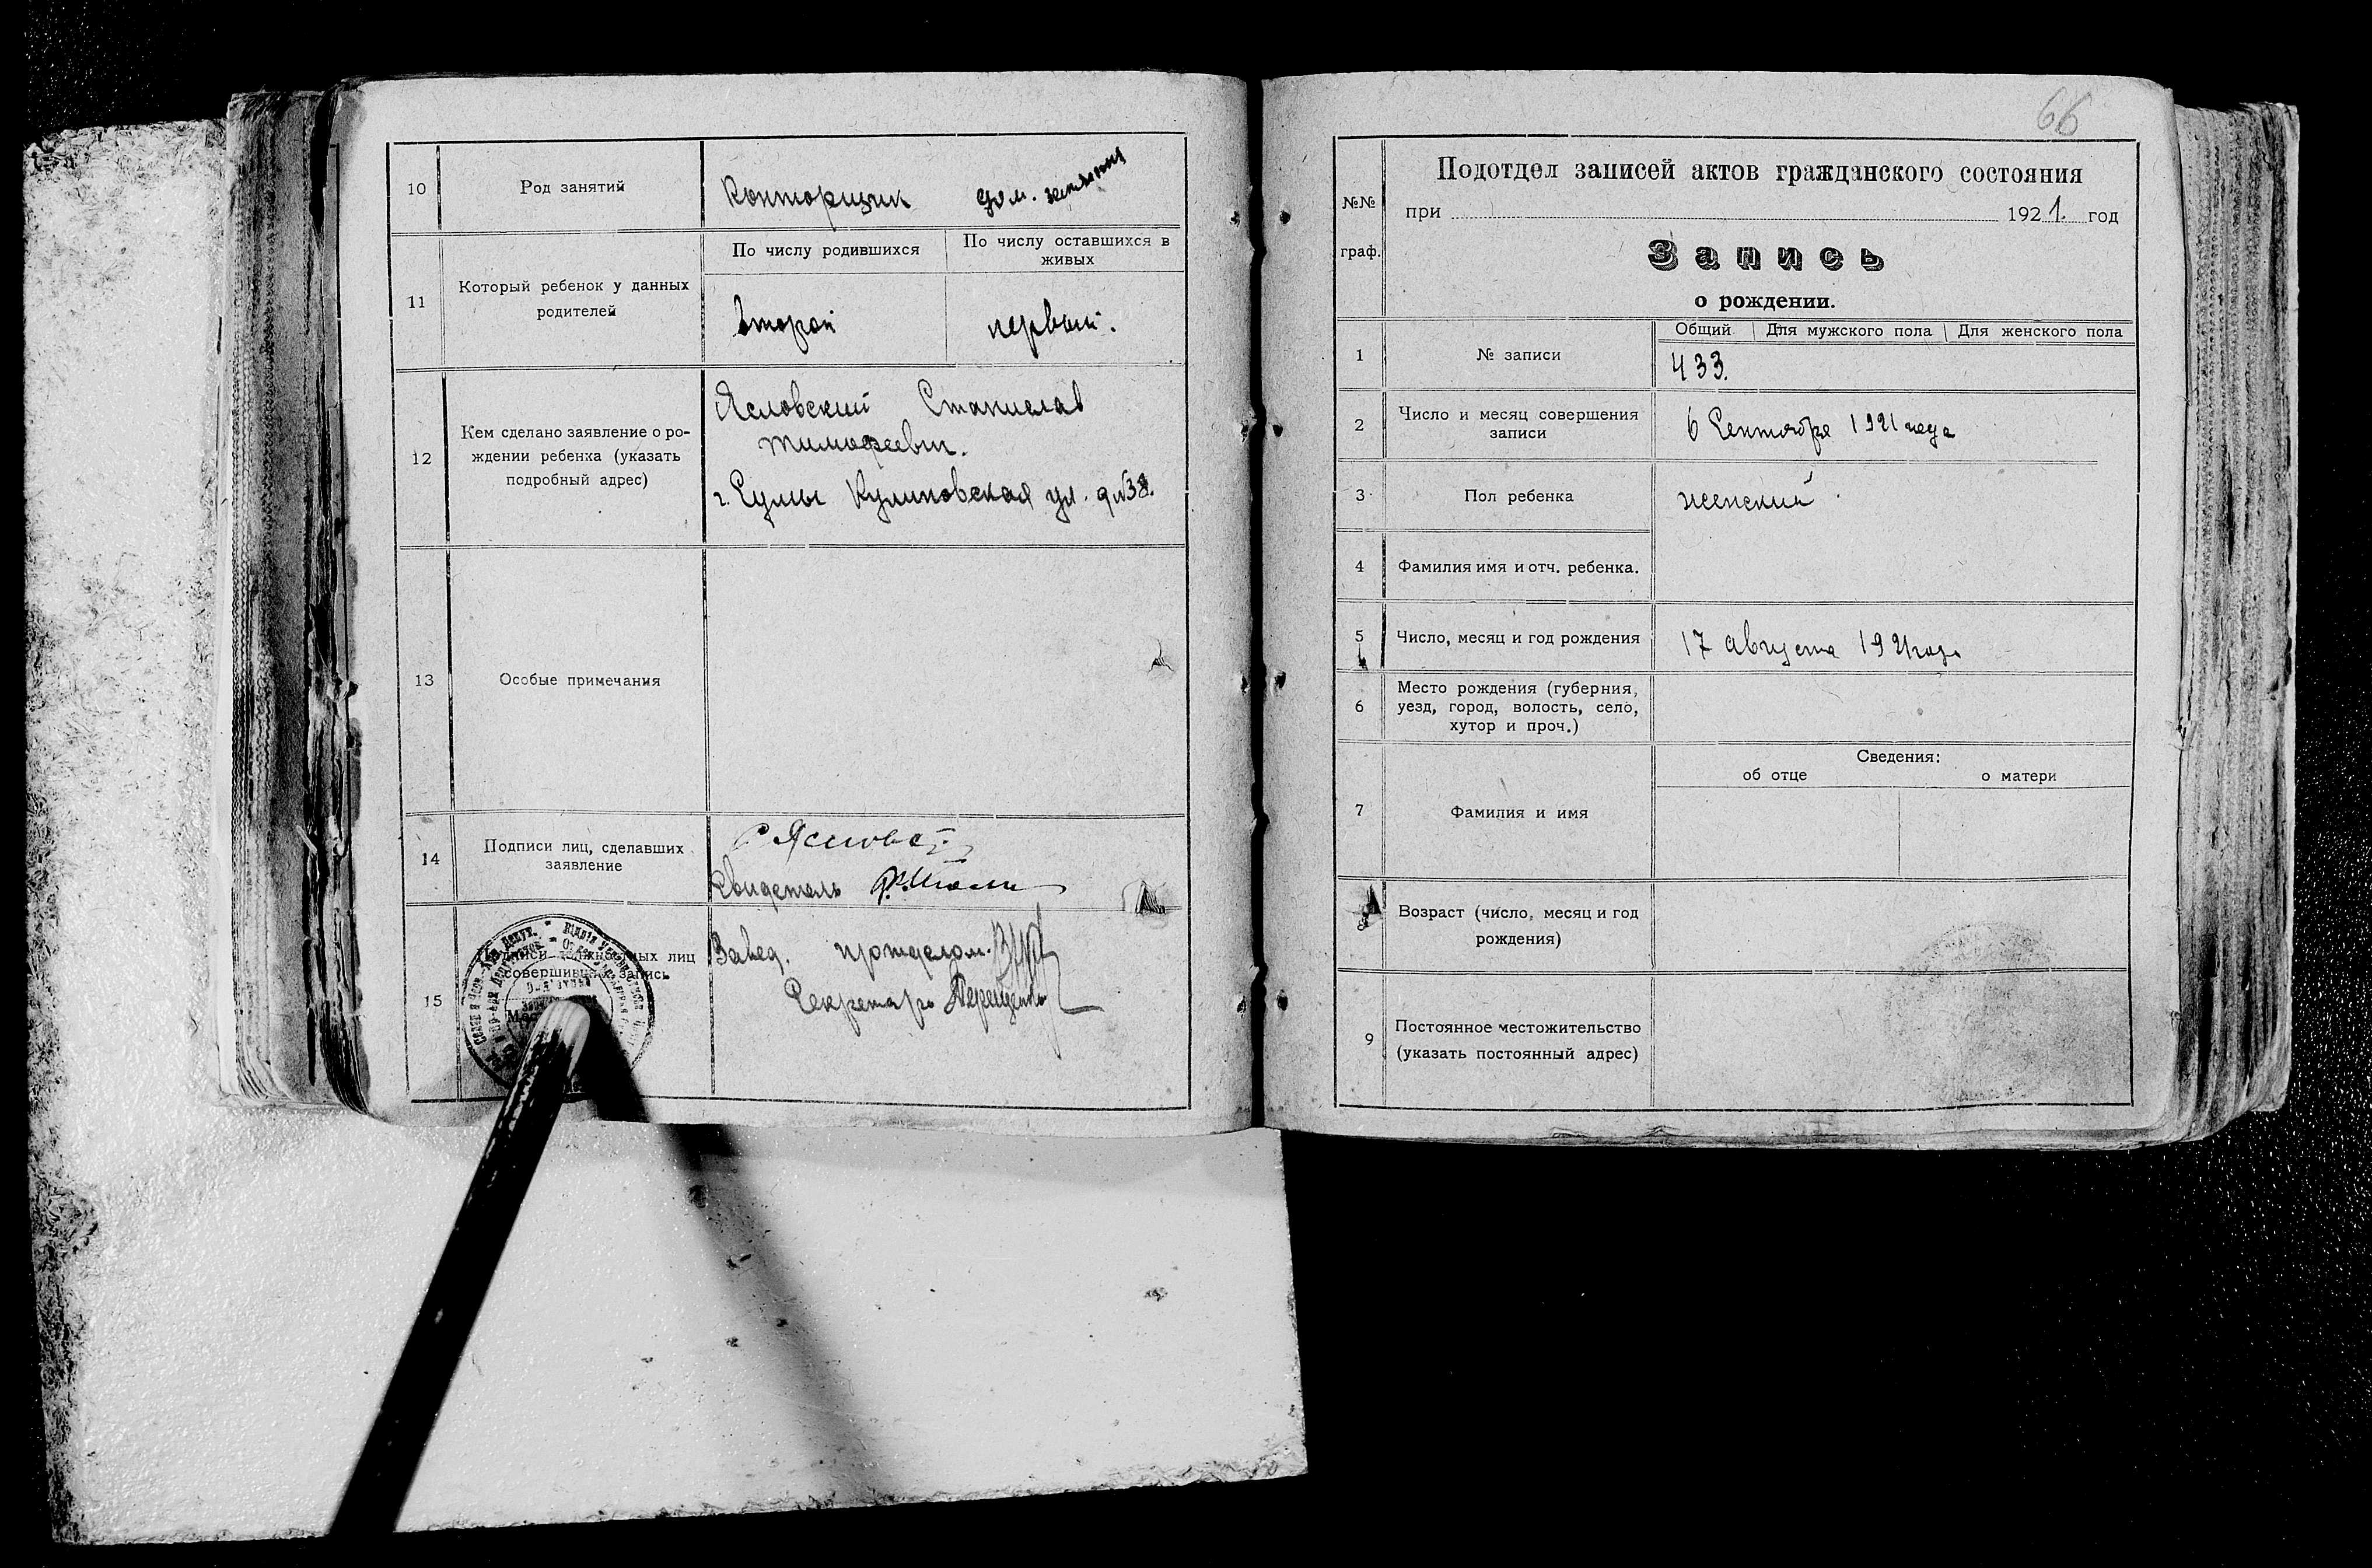 10 Род занятий Конторщик дом. занятия
11 Который ребенок у данных
родителей
По числу родившихся
По числу оставшихся в
живых
второй первый.
12 Кем сделано заявление о ро-
ждении ребенка (указать
подробный адрес)
Ясловский Станислав
Тимофеевич.
г. Сумы Куликовская ул. д №38.
13 Особые примечания
14 Подписи лиц, сделавших
заявление
Свидетель
15 Подписи должностных лиц
совершивших запись
Завед. подотделом.
Секретарь
66
№№
граф.
Подотдел записей актов гражданского состояния
при 1921. год
Запись
о рождении.
Общий Для мужского пола Для женского пола
1 № записи 433.
2 Число и месяц совершения
записи
6 Сентября 1921 года
3 Пол ребенка женский.
4 Фамилия имя и отч. ребенка.
5 Число, месяц и год рождения 17 августа 1921 года
6 Место рождения (губерния,
уезд, город, волость, село,
хутор и проч.)
Сведения:
об отце о матери
7 Фамилия и имя
8 Возраст (число, месяц и год
рождения)
9 Постоянное местожительство
(указать постоянный адрес)